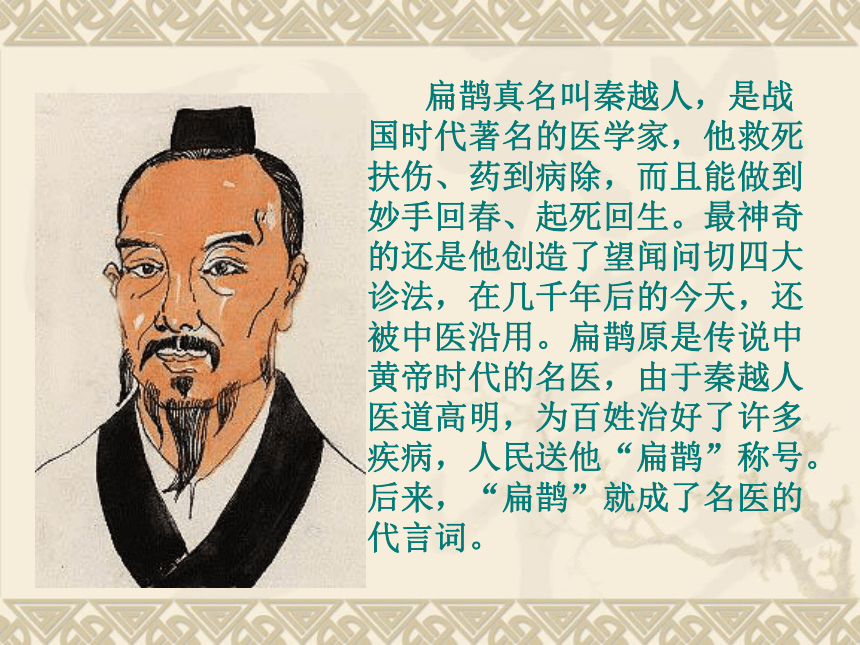 扁鹊真名叫秦越人，是战
国时代著名的医学家，他救死
扶伤、药到病除，而且能做到
妙手回春、起死回生。最神奇
的还是他创造了望闻问切四大
诊法，在几千年后的今天，还
被中医沿用。扁鹊原是传说中
黄帝时代的名医，由于秦越人
医道高明，为百姓治好了许多
疾病，人民送他“扁鹊”称号。
后来，“扁鹊”就成了名医的
代言词。